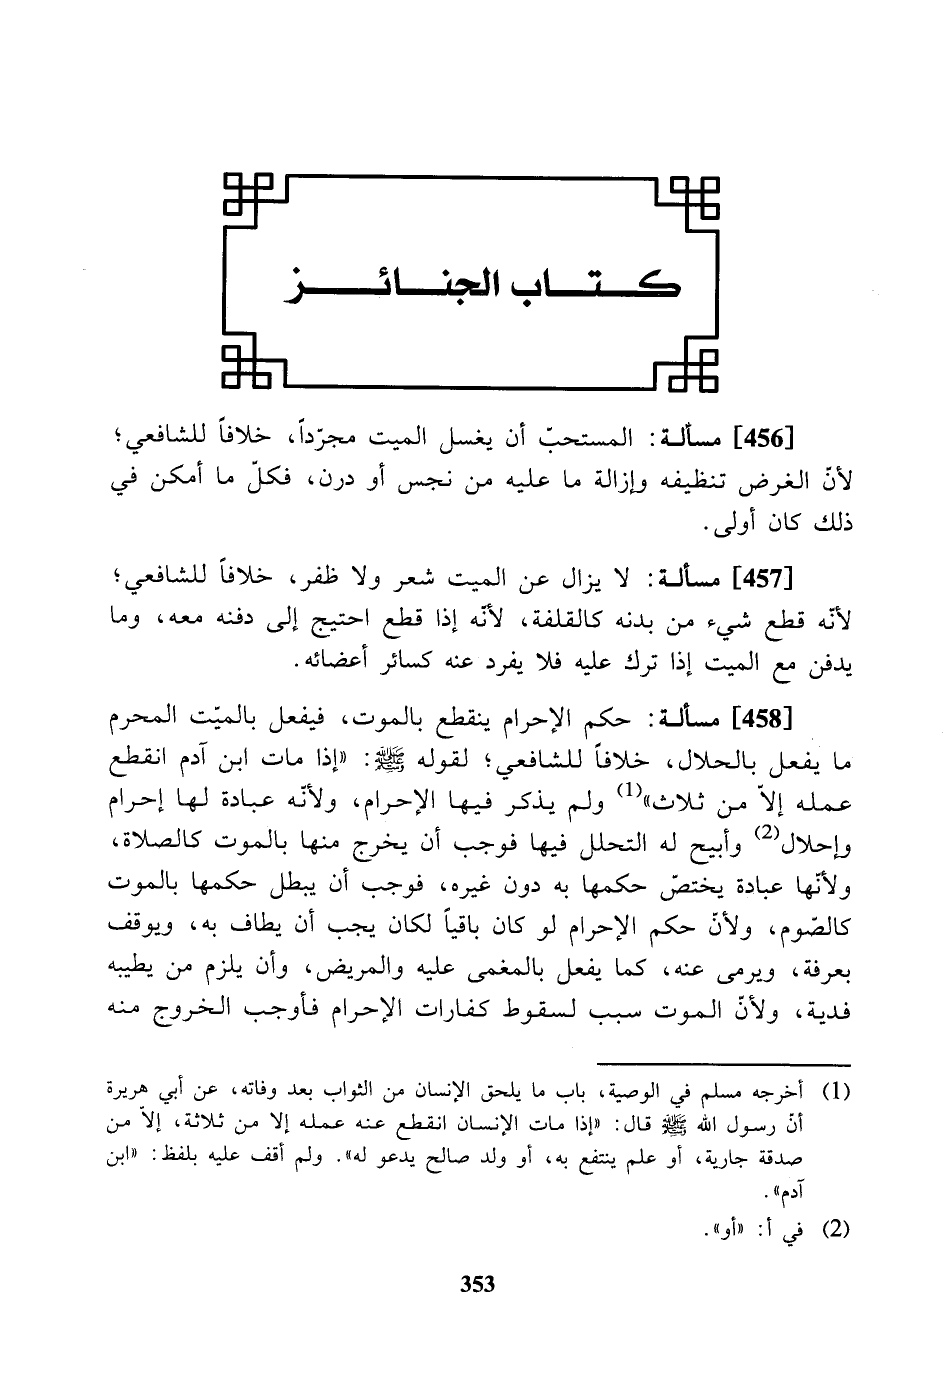 كتاب الجنائز
[456] مسألة: المستحبّ أن يغسل الميت مجرّداً، خلافاً للشافعي؛
لأنّ الغرض تنظيفه وإزالة ما عليه من نجس أو درن، فكلّ ما أمكن في
ذلك كان أولى.
[457] مسألة: لا يزال عن الميت شعر ولا ظفر، خلافاً للشافعي؛
لأنّه قطع شيء من بدنه كالقلفة، لأنّه إذا قطع احتيج إلى دفنه معه، وما
يدفن مع الميت إذا ترك عليه فلا يفرد عنه كسائر أعضائه.
[458] مسألة: حكم الإحرام ينقطع بالموت، فيفعل بالميّت المحرم
ما يفعل بالحلال، خلافاً للشافعي؛ لقوله ﷺ: «إذا مات ابن آدم انقطع
عمله إلاّ من ثلاث»(1) ولم يذكر فيها الإحرام، ولأنّه عبادة لها إحرام
وإحلال(2) وأبيح له التحلل فيها فوجب أن يخرج منها بالموت كالصلاة،
ولأنّها عبادة يختصّ حكمها به دون غيره، فوجب أن يبطل حكمها بالموت
كالصّوم، ولأنّ حكم الإحرام لو كان باقياً لكان يجب أن يطاف به، ويوقف
بعرفة، ويرمى عنه، كما يفعل بالمغمى عليه والمريض، وأن يلزم من يطيبه
فدية، ولأنّ الموت سبب لسقوط كفارات الإحرام فأوجب الخروج منه
(1) أخرجه مسلم في الوصية، باب ما يلحق الإنسان من الثواب بعد وفاته، عن أبي هريرة
أنّ رسول الله ﷺ قال: «إذا مات الإنسان انقطع عنه عمله إلا من ثلاثة، إلاّ من
صدقة جارية، أو علم ينتفع به، أو ولد صالح يدعو له». ولم أقف عليه بلفظ: «ابن
آدم».
(2) في أ: «أو».
353